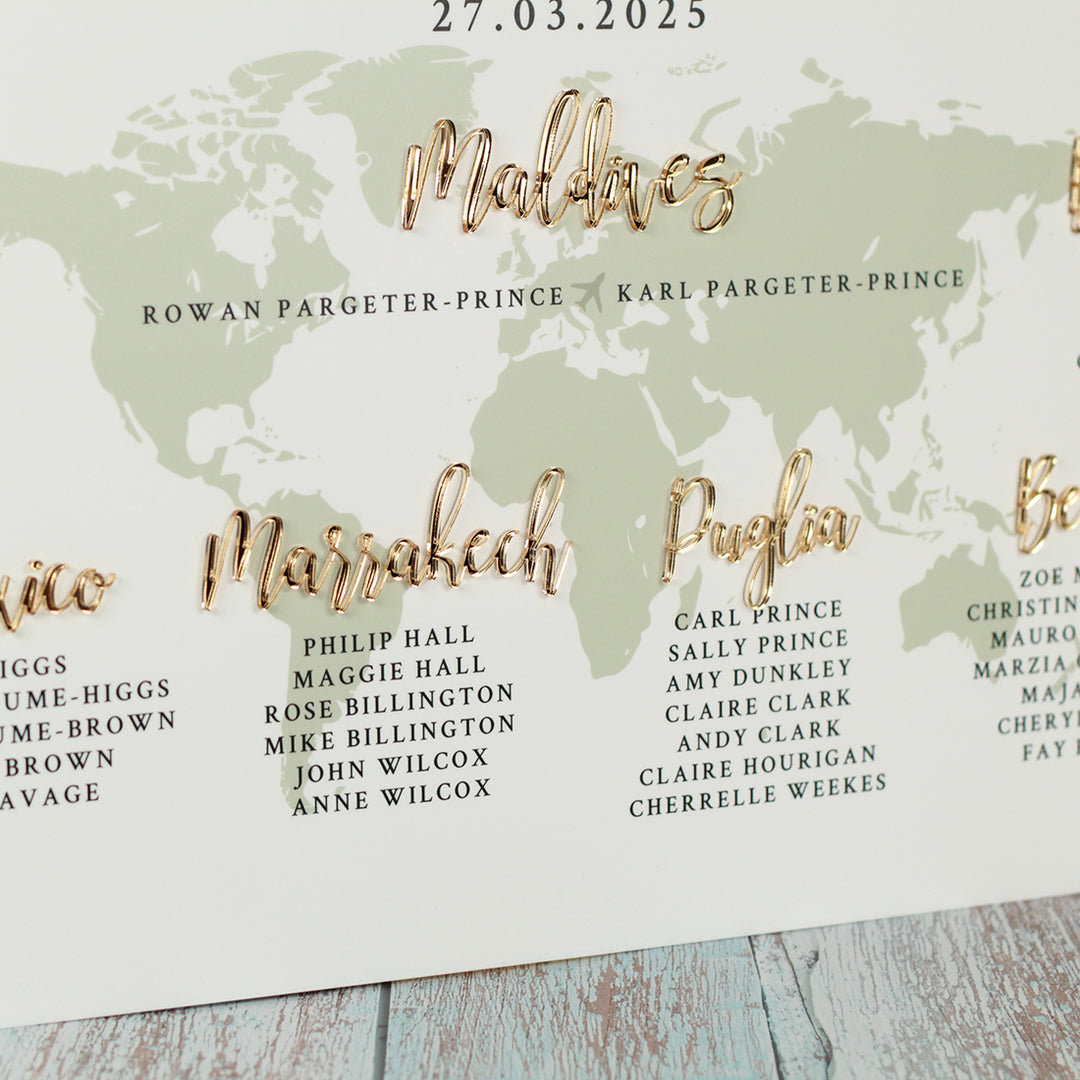 27.03.2025
Maldives
ROWAN PARGETER-PRINCE KARL PARGETER-PRINCE
Marrakech
PHILIP HALL
MAGGIE HALL
ROSE BILLINGTON
MIKE BILLINGTON
JOHN WILCOX
ANNE WILCOX
Puglia
CARL PRINCE
SALLY PRINCE
AMY DUNKLEY
CLAIRE CLARK
ANDY CLARK
CLAIRE HOURIGAN
CHERRELLE WEEKES
IGGS
UME-HIGGS
UME-BROWN
BROWN
AVAGE
Be
ZOE M
CHRISTIN
MAURO
MARZIA
MAJA
CHERYL
FAY